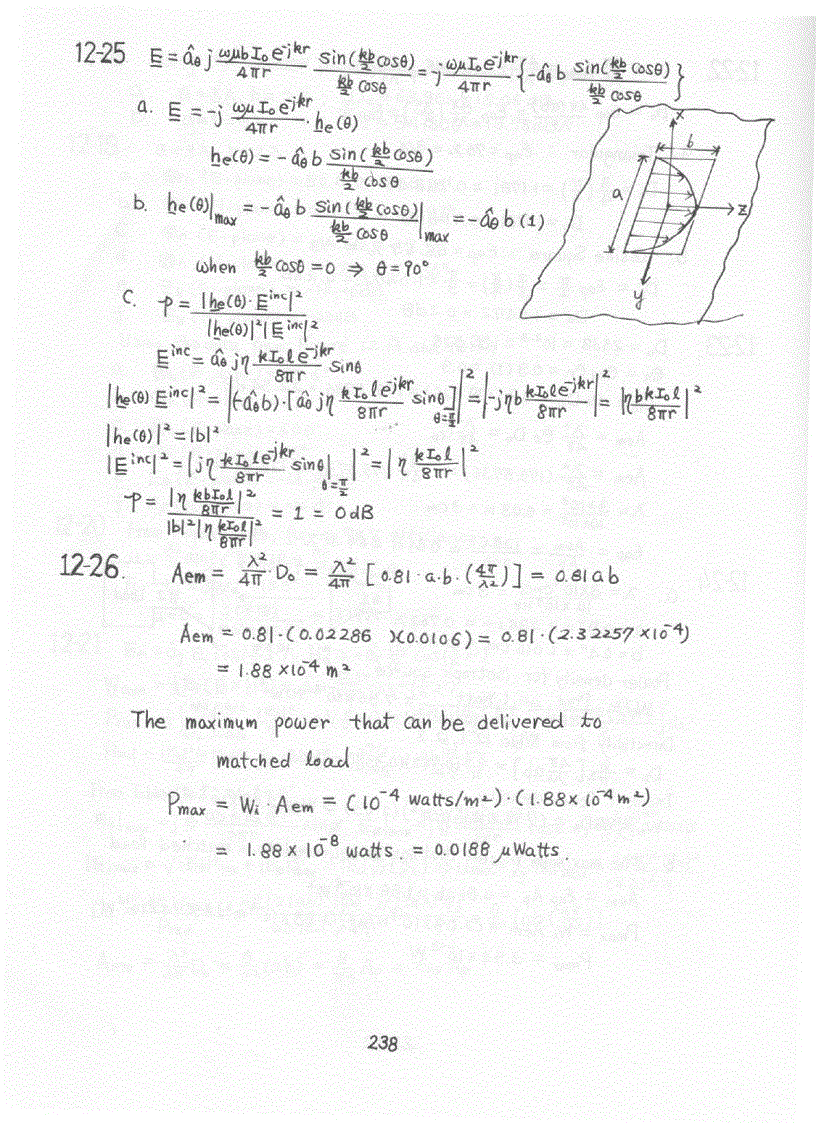 12-25 E = âθ j ωμbI₀e^-jkr / 4πr · sin(kb/2 cosθ) / (kb/2 cosθ) = -j ωμI₀e^-jkr / 4πr {-âθ b sin(kb/2 cosθ) / (kb/2 cosθ)}
a. E = -j ωμI₀e^-jkr / 4πr · he(θ)
he(θ) = -âθ b sin(kb/2 cosθ) / (kb/2 cosθ)
b. he(θ)|max = -âθ b sin(kb/2 cosθ) / (kb/2 cosθ)|max = -âθ b(1)
when kb/2 cosθ = 0 ⇒ θ = 90°
x
b
a
z
y
c. p = |he(θ)·E^inc|² / |he(θ)|²|E^inc|²
E^inc = âθ jη kI₀le^-jkr / 8πr sinθ
|he(θ) E^inc|² = |(-âθb)·[âθ jη kI₀le^-jkr / 8πr sinθ]θ=π/2|² = |-jηb kI₀le^-jkr / 8πr|² = |ηbkI₀l / 8πr|²
|he(θ)|² = |b|²
|E^inc|² = |jη kI₀le^-jkr / 8πr sinθ|θ=π/2|² = |η kI₀l / 8πr|²
p = |η kbI₀l / 8πr|² / |b|²|η kI₀l / 8πr|² = 1 = 0 dB
12-26. Aem = λ²/4π · D₀ = λ²/4π [0.81·a·b·(4π/λ²)] = 0.81ab
Aem = 0.81·(0.02286 )(0.0106) = 0.81·(2.32257×10^-4)
= 1.88 ×10^-4 m²
The maximum power that can be delivered to
matched load
Pmax = Wi · Aem = (10^-4 watts/m²)·(1.88×10^-4 m²)
= 1.88 × 10^-8 watts. = 0.0188 μWatts.
238